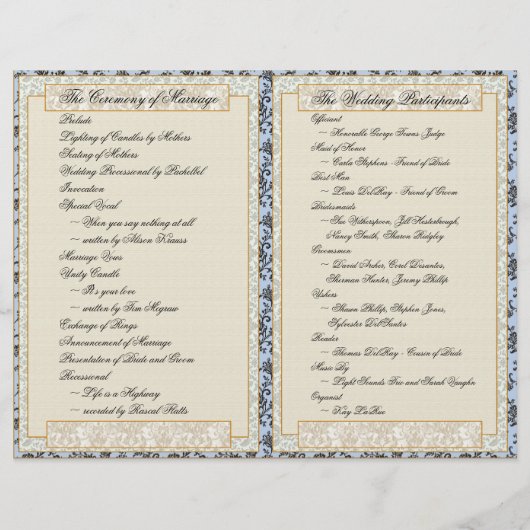 The Ceremony of Marriage
Prelude
Lighting of Candles by Mothers
Seating of Mothers
Wedding Processional by Pachelbel
Invocation
Special Vocal
~ When you say nothing at all
~ written by Alison Krauss
Marriage Vows
Unity Candle
~ It's your love
~ written by Tim Mcgraw
Exchange of Rings
Announcement of Marriage
Presentation of Bride and Groom
Recessional
~ Life is a Highway
~ recorded by Rascal Flatts
The Wedding Participants
Officiant
~ Honorable George Towns Judge
Maid of Honor
~ Carla Stephens - Friend of Bride
Best Man
~ Louis DelRay - Friend of Groom
Bridesmaids
~ Sue Witherspoon, Jill Hasterbrough,
Nancy Smith, Sharon Ridgley
Groomsmen
~ David Archer, Corel Desantos,
Sherman Hunter, Jeremy Phillip
Ushers
~ Shawn Phillip, Stephen Jones,
Sylvester DelSantos
Reader
~ Thomas DelRay - Cousin of Bride
Music By
~ Light Sounds Trio and Sarah Vaughn
Organist
~ Kay LaRue